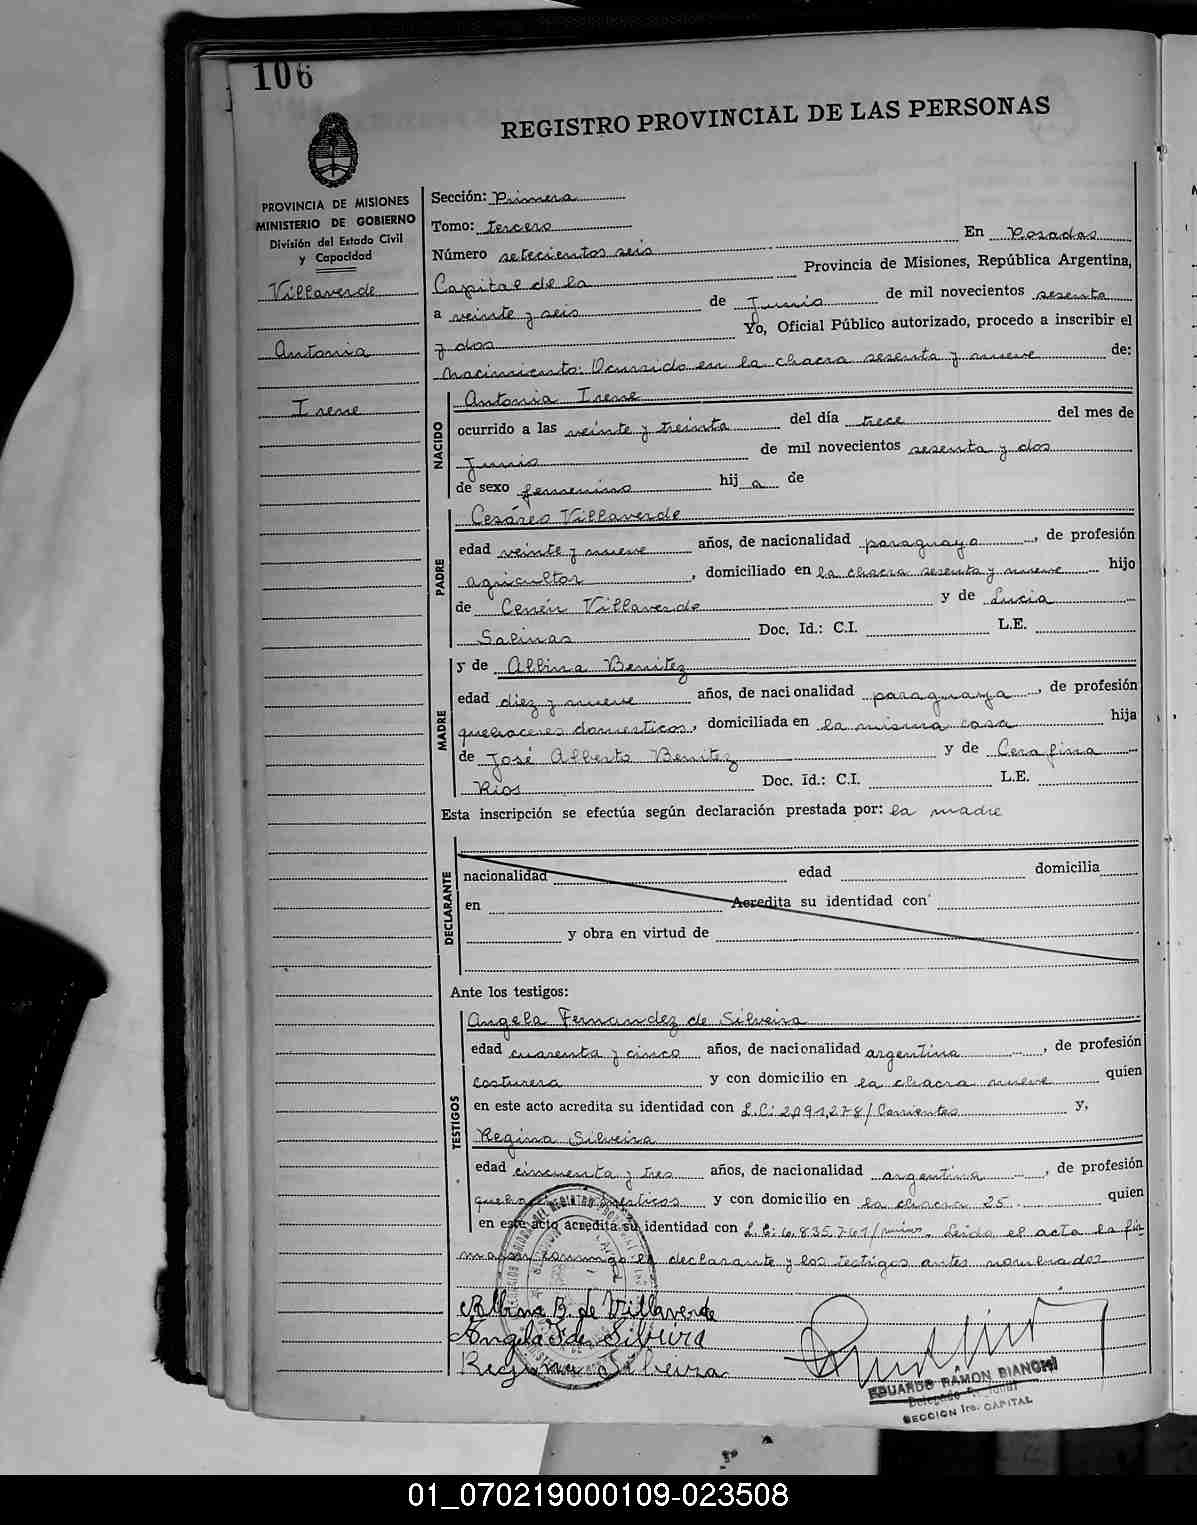 106
REGISTRO PROVINCIAL DE LAS PERSONAS
PROVINCIA DE MISIONES
MINISTERIO DE GOBIERNO
División del Estado Civil
y Capacidad
Villaverde
Antonia
Irene
Sección: Primera
Tomo: tercero
Número setecientos seis En Posadas
Capital de la Provincia de Misiones, República Argentina,
a veinte y seis de Junio de mil novecientos sesenta
y dos Yo, Oficial Público autorizado, procedo a inscribir el
Nacimiento: Ocurrido en la chacra sesenta y nueve de:
NACIDO
Antonia Irene
ocurrido a las veinte y treinta del día trece del mes de
Junio de mil novecientos sesenta y dos
de sexo femenino hij a de
PADRE
Cesáreo Villaverde
edad veinte y nueve años, de nacionalidad paraguaya, de profesión
agricultor, domiciliado en la chacra sesenta y nueve hijo
de Cenén Villaverde y de Lucia
Salinas Doc. Id.: C.I. L.E.
MADRE
y de Albina Benitez
edad diez y nueve años, de nacionalidad paraguaya, de profesión
quehaceres domesticos, domiciliada en la misma casa hija
de José Alberto Benitez y de Cerafina
Rios Doc. Id.: C.I. L.E.
Esta inscripción se efectúa según declaración prestada por: la madre
DECLARANTE
nacionalidad edad domicilia
en Acredita su identidad con
y obra en virtud de
Ante los testigos:
TESTIGOS
Angela Fernandez de Silveira
edad cuarenta y cinco años, de nacionalidad argentina, de profesión
costurera y con domicilio en la chacra nueve quien
en este acto acredita su identidad con L.C: 2,091,278/Corrientes y,
Regina Silveira
edad cincuenta y tres años, de nacionalidad argentina, de profesión
domesticos y con domicilio en la chacra 25 quien
en este acto acredita su identidad con L.C: 6.835.761/ Leido el acta la fir
man conmigo la declarante y los testigos antes nombrados
Albina B. de Villaverde
Angela F de Silveira
Regina Silveira
EDUARDO RAMON BIANCHI
Delegado
SECCION 1ra. CAPITAL
01_070219000109-023508